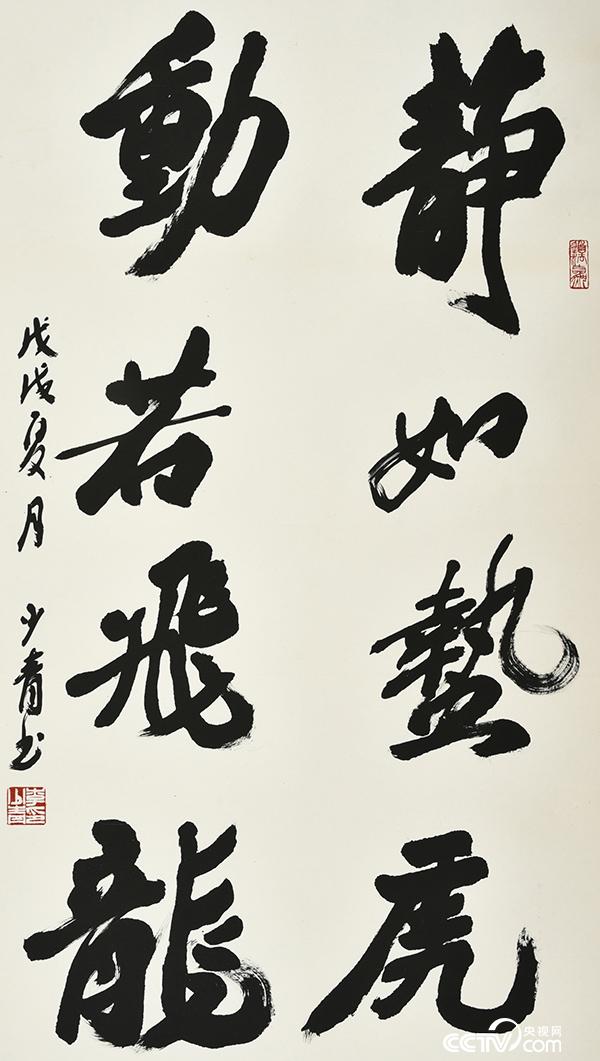 静如蛰虎
動若飛龍
戊戌夏月 少青书
央视网
CCTV.com